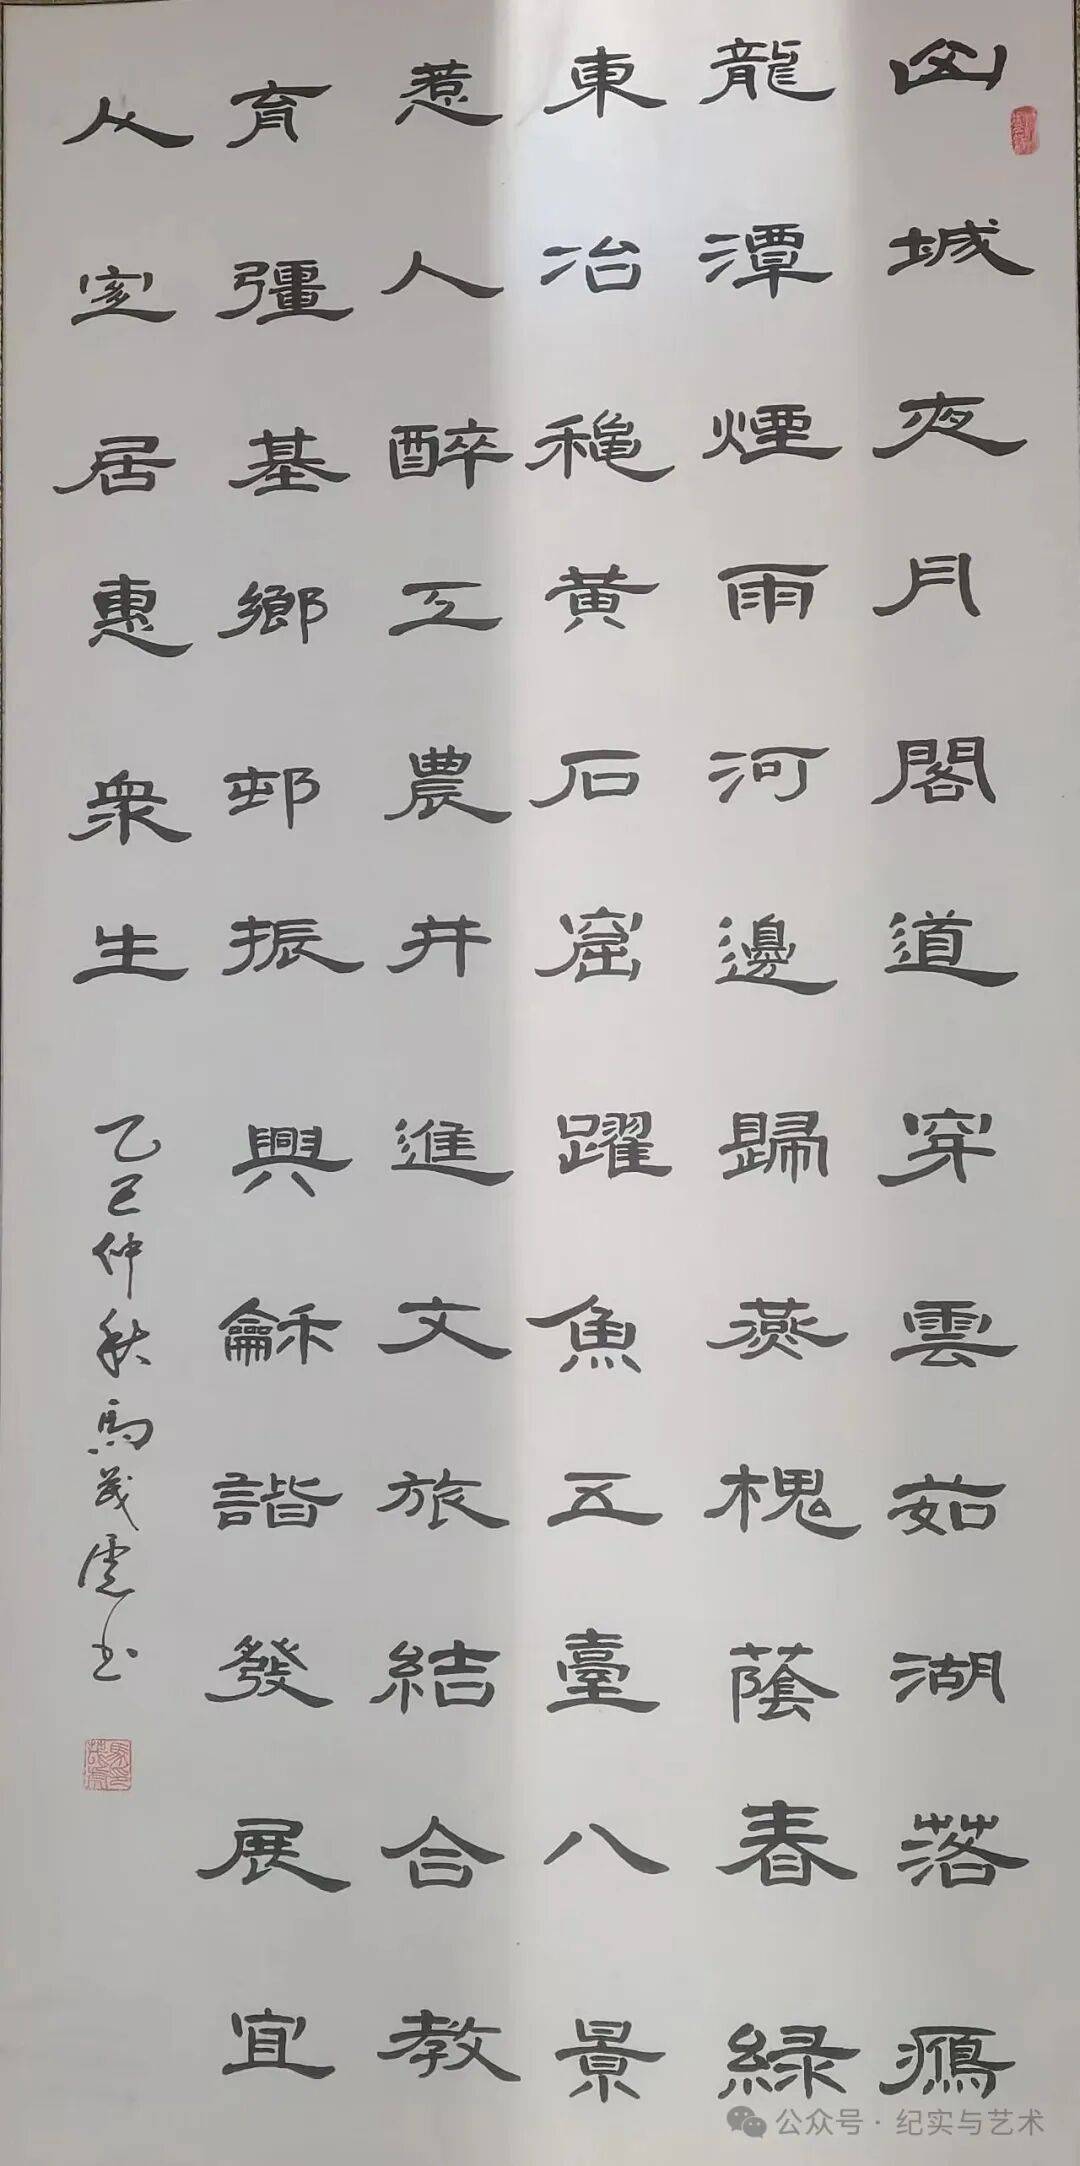 城夜月閣道穿雲茹湖落鴈
龍潭煙雨河邊歸燕槐蔭春緑
東冶穐黄石窟躍魚五臺八景
惹人醉工農并進文旅結合教
育彊基鄉邨振興龢諧發展宜
人宐居惠衆生
乙巳仲秋馬茂虎书
公众号·纪实与艺术